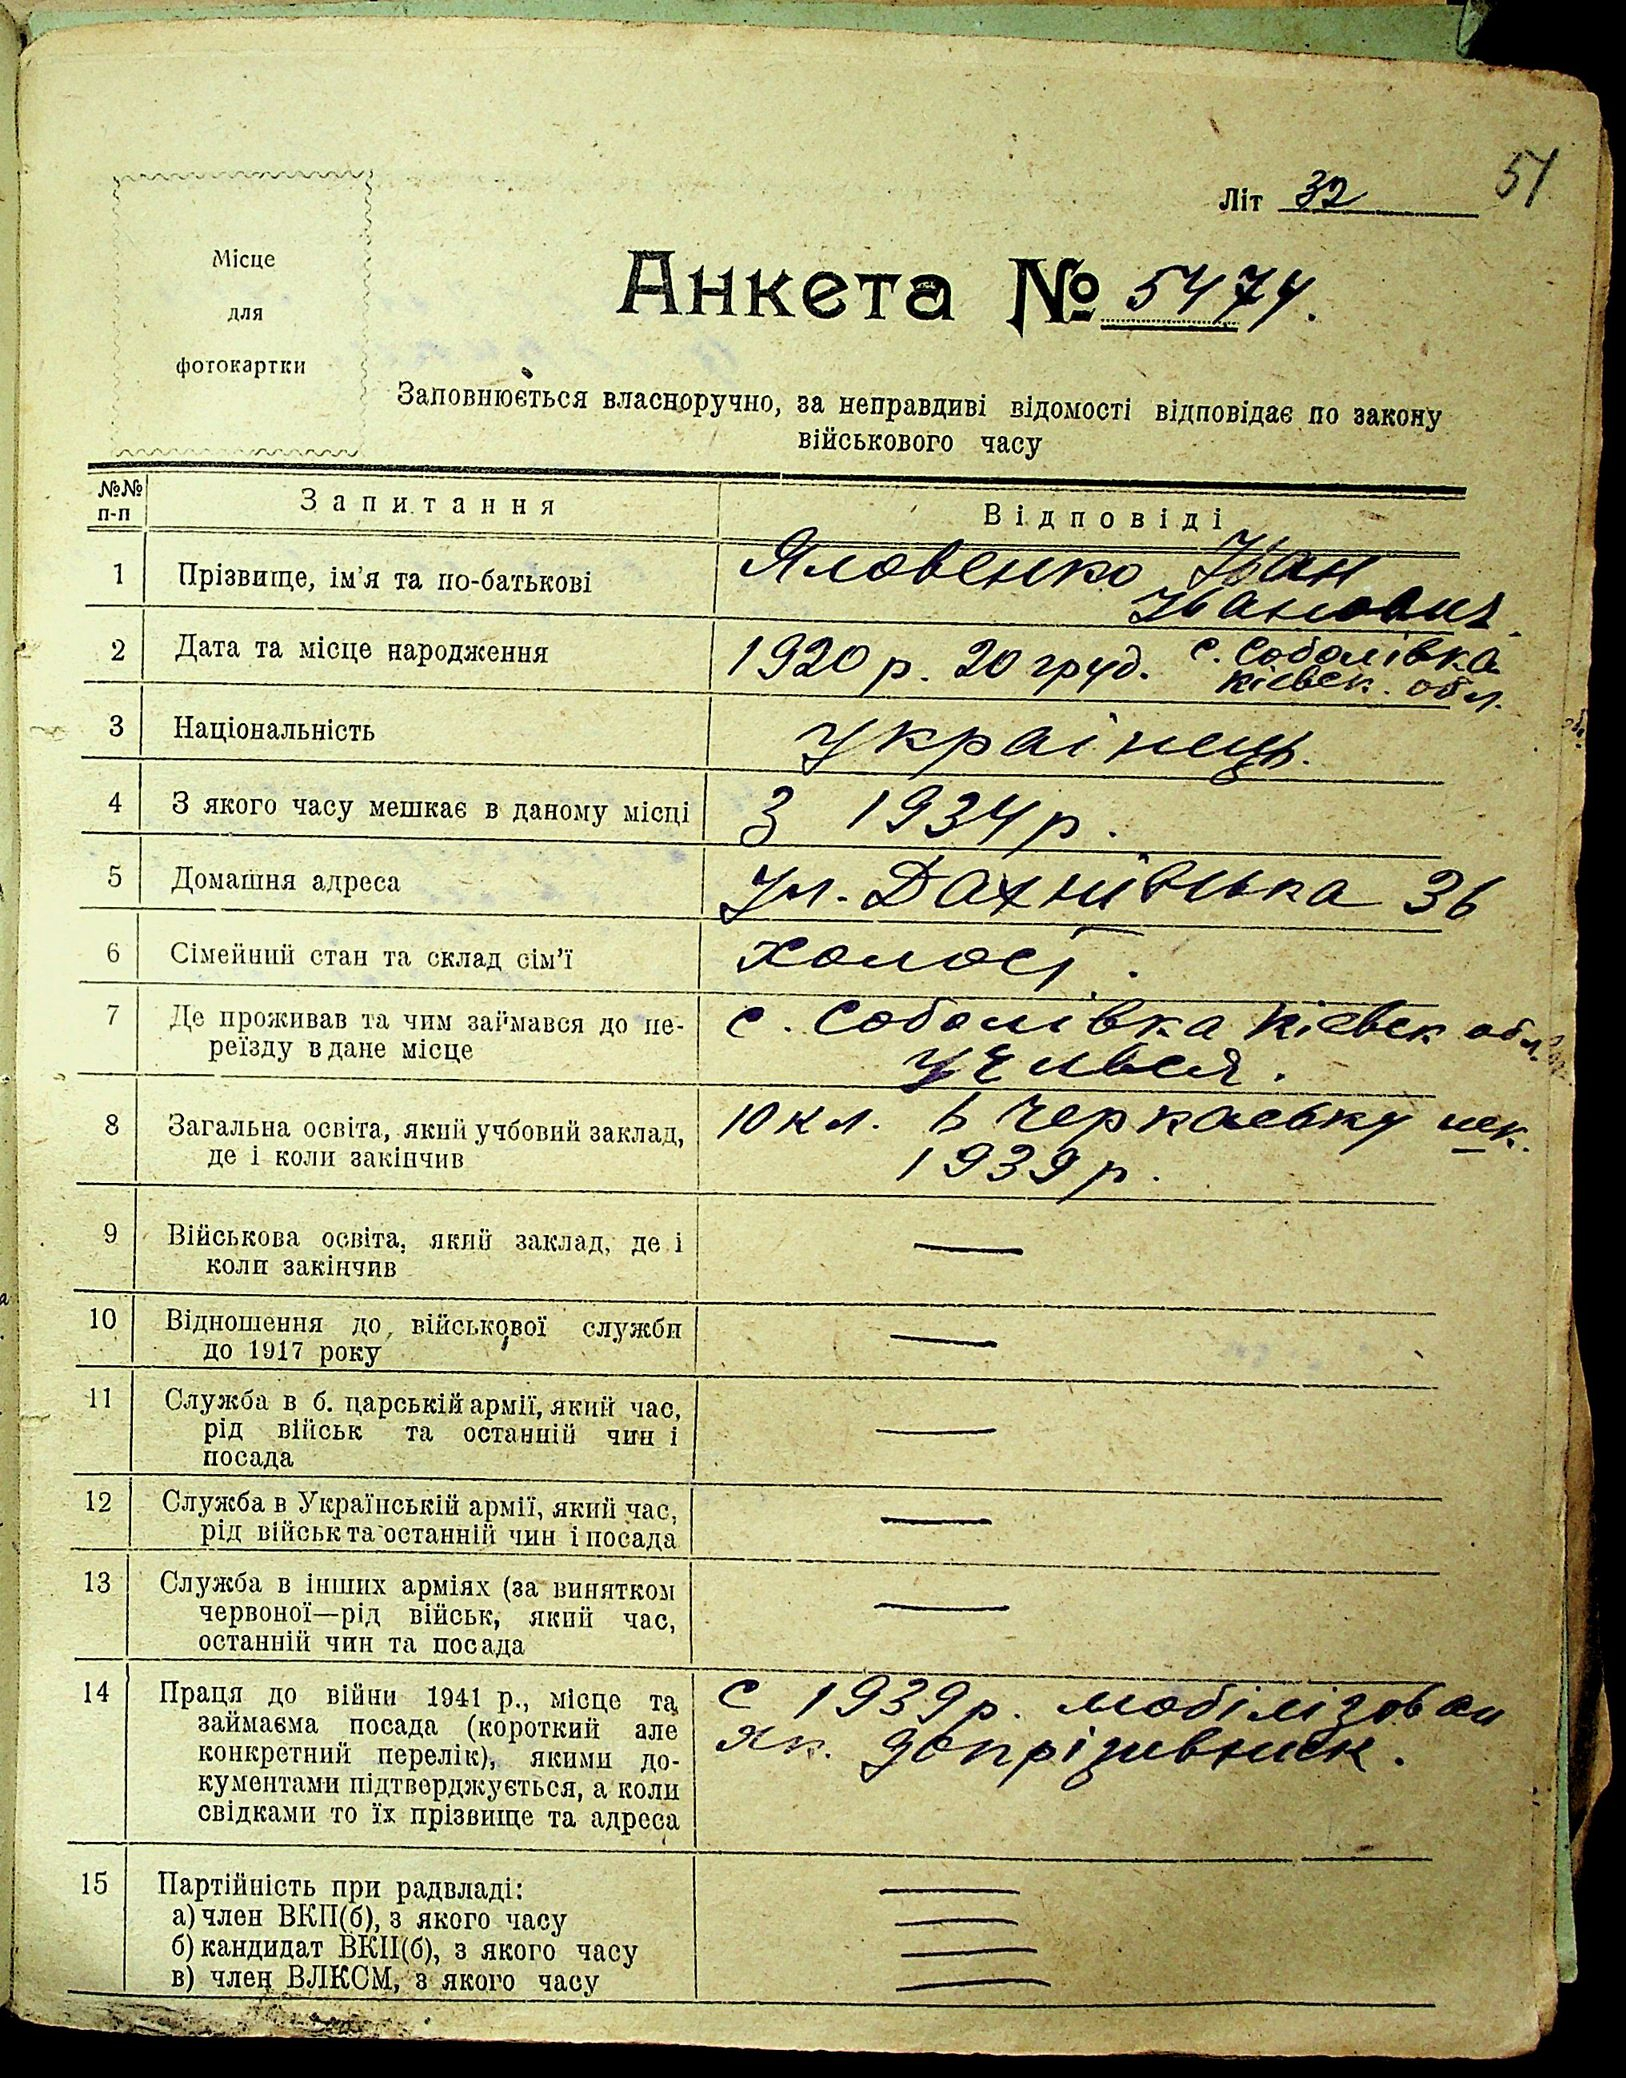 51
Літ 32
Місце
для
фотокартки
Анкета № 5474.
Заповнюється власноручно, за неправдиві відомості відповідає по закону
військового часу
№№ п-п
Запитання
Відповіді
1 Прізвище, ім'я та по-батькові
Яловенко Іван
Іванович
2 Дата та місце народження
1920 р. 20 груд. с. Соболівка
Кієвск. обл.
3 Національність
Українець.
4 З якого часу мешкає в даному місці
З 1934 р.
5 Домашня адреса
Ул. Дахнівська 36
6 Сімейний стан та склад сім'ї
Холост.
7 Де проживав та чим займався до пе-
реїзду в дане місце
с. Соболівка Кієвск обл.
учився.
8 Загальна освіта, який учбовий заклад,
де і коли закінчив
10 кл. в Черкаську шк.
1939 р.
9 Військова освіта, який заклад, де і
коли закінчив
—
10 Відношення до військової служби
до 1917 року
—
11 Служба в б. царській армії, який час,
рід військ та останній чин і
посада
—
12 Служба в Українській армії, який час,
рід військ та останній чин і посада
—
13 Служба в інших арміях (за винятком
червоної—рід військ, який час,
останній чин та посада
—
14 Праця до війни 1941 р., місце та
займаєма посада (короткий але
конкретний перелік), якими до-
кументами підтверджується, а коли
свідками то їх прізвище та адреса
с 1939 р. мобілізован
як допрізивнік.
15 Партійність при радвладі:
а) член ВКП(б), з якого часу
б) кандидат ВКП(б), з якого часу
в) член ВЛКСМ, з якого часу
—
—
—
—